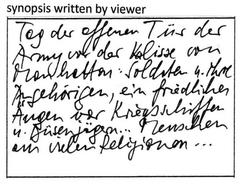 synopsis written by viewer
Tag der offenen Tür der
Army vor der Kulisse von
Manhatten: Soldaten u. ihre
Angehörigen, ein friedliches
vor Kriegsschiffen
u. Düsenjägern... Menschen
aus vielen Religionen...